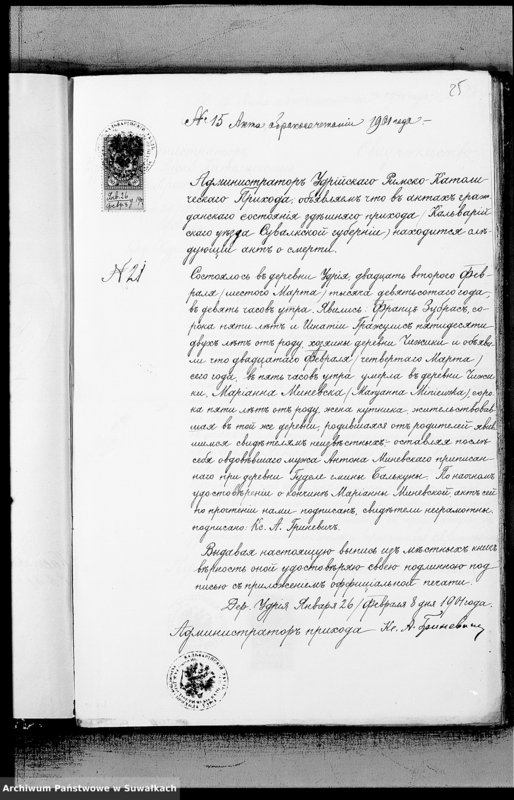 25
№ 15 Акта бракосочетания 1901 года
Администраторъ Удрійскаго Римско-Католи-
ческаго Прихода, объявляемъ что въ актахъ граж-
данскаго состоянія здѣшняго прихода (Кальварій
скаго уѣзда Сувалкской губерніи) находится слѣ-
дующій актъ о смерти.
№ 21
Состоялось въ деревни Удрія, двадцать втораго Фев-
раля (шестого Марта) тысяча девятьсотаго года,
въ девять часовъ утра. Явились: Францъ Зубрасъ, со-
рока пяти лѣтъ и Игнатій Гражулисъ пятидесяти
двухъ лѣтъ отъ роду, хозяины деревни Чижики и объяви-
ли что двадцатаго Февраля (четвертаго Марта)
сего года, въ пять часовъ утра умерла въ деревни Чижи-
ки, Маріанна Миневска (Maryanna Miniewska) соро-
ка пяти лѣтъ отъ роду, жена кутника, жительствовав-
шая въ той же деревни, родившаяся отъ родителей явив
шимся свидѣтелямъ неизвѣстныхъ - оставляя послѣ
себя овдовѣвшаго мужа Антона Миневскаго приписан-
наго при деревни Гуделе гмины Балькуны. По наочномъ
удостовѣреніи о кончинѣ Маріанны Миневской, актъ сей
по прочтеніи нами подписанъ, свидѣтели неграмотны.
подписано: Кс. А. Гриневичъ.
Выдавая настоящую выпись изъ мѣстныхъ книгъ
вѣрность оной удостовѣряю своею подлинною под
писью съ приложеніемъ оффиціальной печати.
Дер. Удрія Января 26 / Февраля 8 дня 1901 года.
Администраторъ прихода Кс. А. Гриневичъ
Archiwum Państwowe w Suwałkach